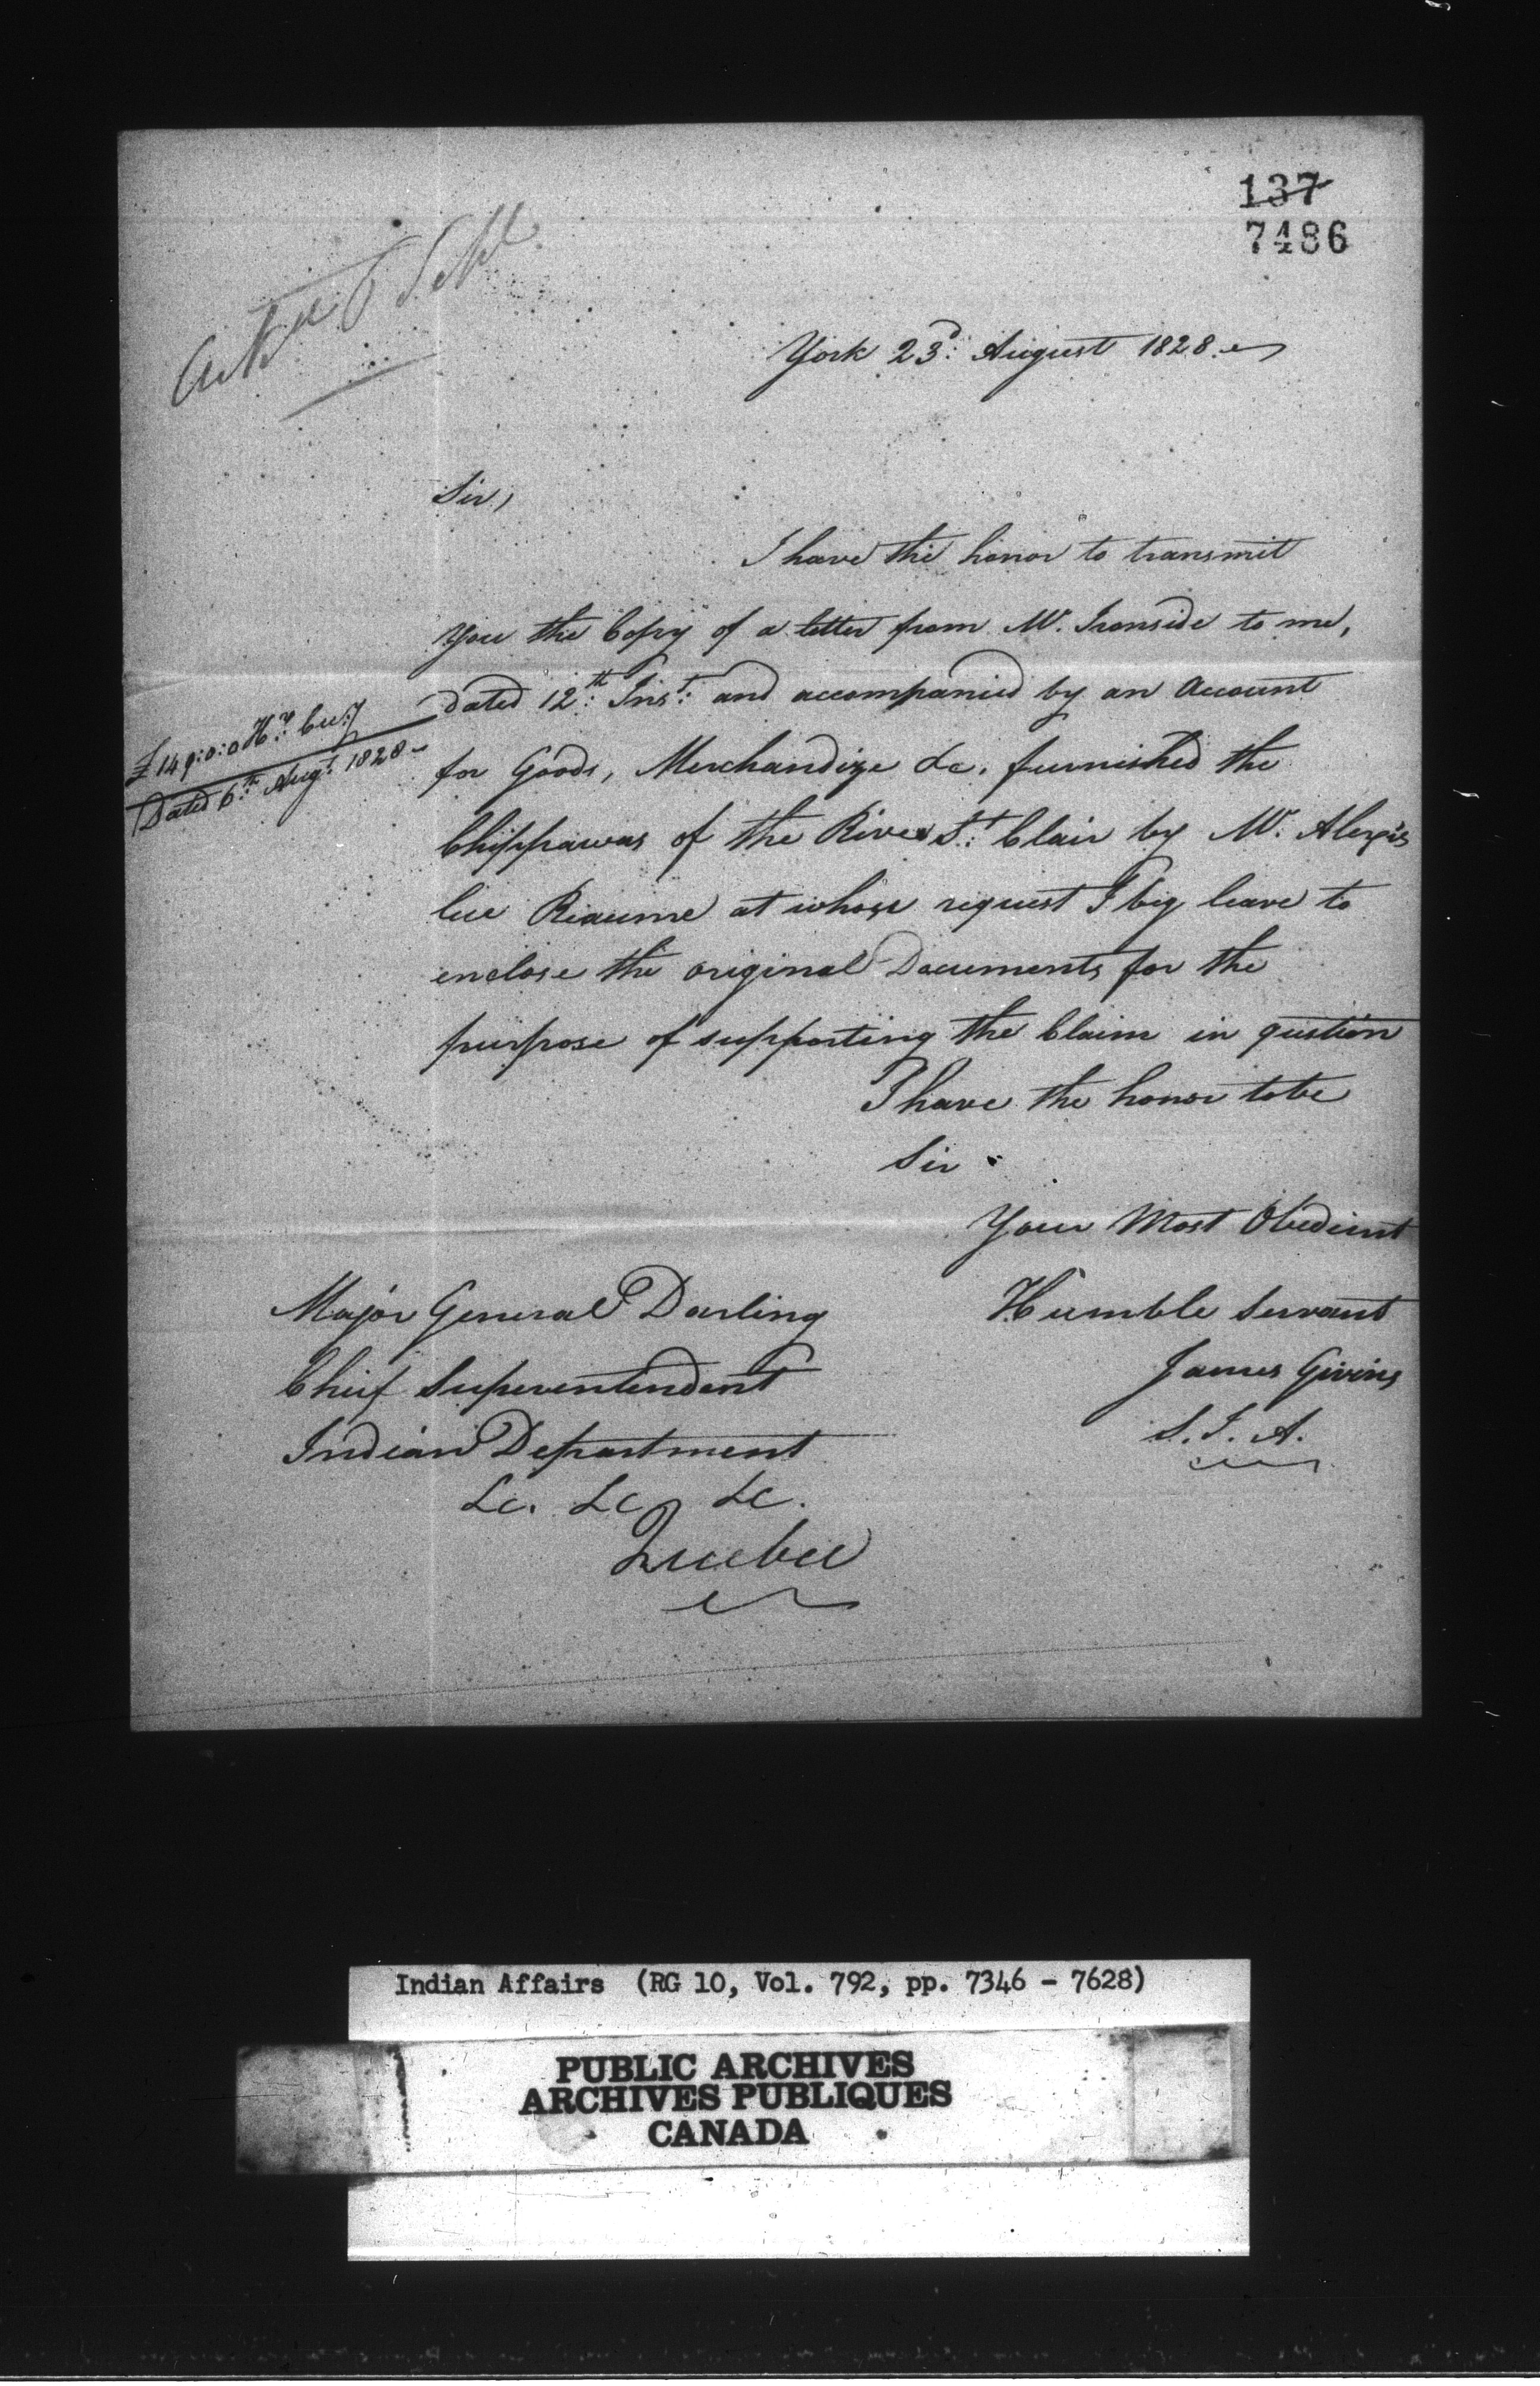 137
7486
Ack'd 5 Sept
York 23d: August 1828
Sir,
I have the honor to transmit
you the Copy of a letter from Mr. Ironside to me,
dated 12th: Inst: and accompanied by an Account
£149:0:0 Hx: Cu:y
Dated 6th: Augt: 1828
for Goods, Merchandize &c. furnished the
Chippawas of the River St: Clair by Mr. Alexis
Luc Reaume at whose request I beg leave to
enclose the original Documents for the
purpose of supporting the Claim in question
I have the honor to be
Sir
Your Most Obedient
Humble Servant
James Givins
S. I. A.
Major General Darling
Chief Superentendent
Indian Department
&c. &c &c.
Quebec
Indian Affairs (RG 10, Vol. 792, pp. 7346 - 7628)
PUBLIC ARCHIVES
ARCHIVES PUBLIQUES
CANADA